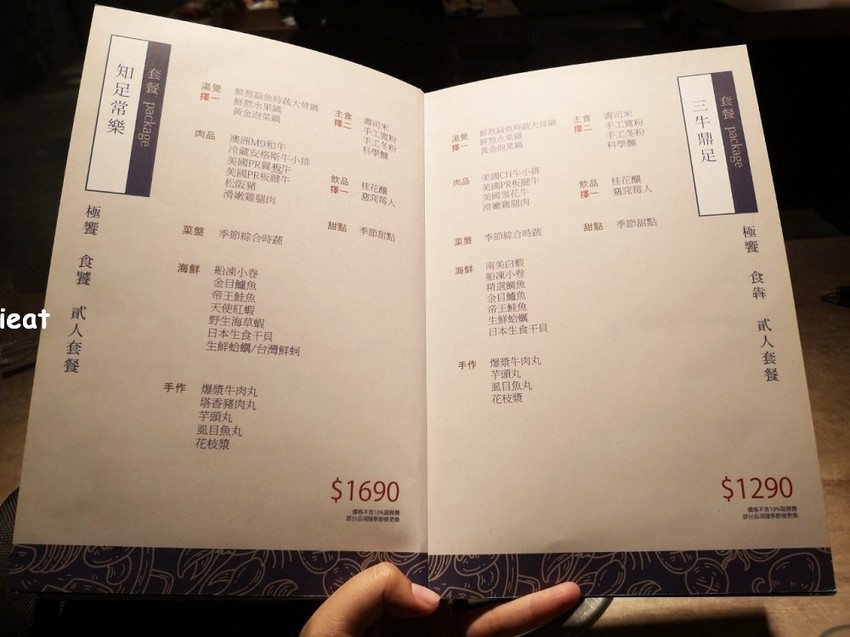 知足常樂
套餐 package
極饗 食饕 貳人套餐
湯覺
擇一
鮮熬扁魚時蔬大骨鍋
鮮熬水果鍋
黃金泡菜鍋
主食
擇二
壽司米
手工寬粉
手工冬粉
科學麵
肉品
澳洲M9和牛
冷藏安格斯牛小排
美國PR翼板牛
美國PR板腱牛
松阪豬
滑嫩雞腿肉
飲品
擇一
桂花釀
寇莓人
菜盤
季節綜合時蔬
甜點
季節甜點
海鮮
船凍小卷
金目鱸魚
帝王鮭魚
天使紅蝦
野生海草蝦
日本生食干貝
生鮮蛤蠣/台灣鮮蚵
手作
爆漿牛肉丸
塔香豬肉丸
芋頭丸
虱目魚丸
花枝漿
$1690
價格不含10%服務費
部分品項隨季節做更換
三牛鼎足
套餐 package
極饗 食犇 貳人套餐
湯覺
擇一
鮮熬扁魚時蔬大骨鍋
鮮熬水果鍋
黃金泡菜鍋
主食
擇二
壽司米
手工寬粉
手工冬粉
科學麵
肉品
美國CH牛小排
美國PR板腱牛
美國雪花牛
滑嫩雞腿肉
飲品
擇一
桂花釀
寇莓人
菜盤
季節綜合時蔬
甜點
季節甜點
海鮮
南美白蝦
船凍小卷
精選鯛魚
金目鱸魚
帝王鮭魚
生鮮蛤蠣
日本生食干貝
手作
爆漿牛肉丸
芋頭丸
虱目魚丸
花枝漿
$1290
價格不含10%服務費
部分品項隨季節做更換
ieat